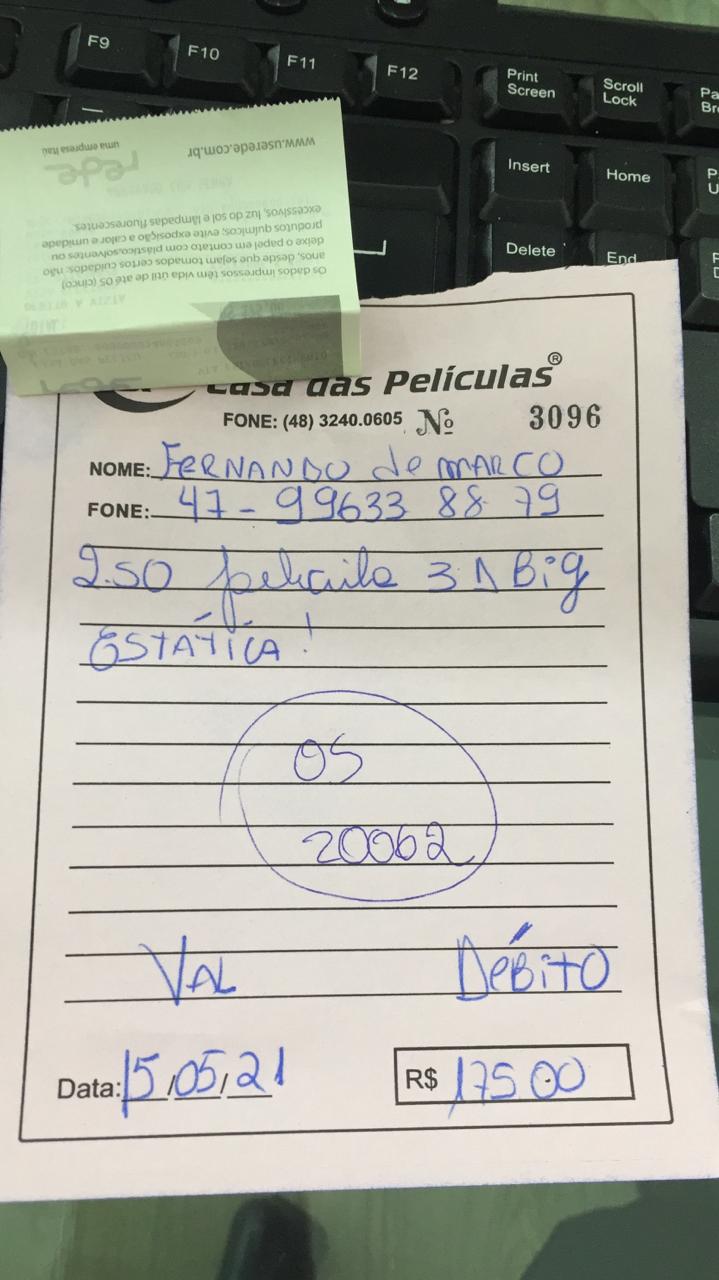 F9
F10
F11
F12
Print
Screen
Scroll
Lock
Pa
Br
Insert
Home
P
U
Delete
End
www.userede.com.br
rede
uma empresa Itaú
Os dados impressos têm vida útil de até 05 (cinco)
anos, desde que sejam tomados certos cuidados: não
deixe o papel em contato com plástico,solventes ou
produtos químicos; evite exposição a calor e umidade
excessivos, luz do sol e lâmpadas fluorescentes.
Casa das Películas®
FONE: (48) 3240.0605 Nº 3096
NOME: FERNANDO de MARCO
FONE: 47-99633 88 79
2.50 pelicula 3 Big
ESTÁTICA!
OS
20062
VAL DÉBITO
Data: 15/05/21 R$ 175.00